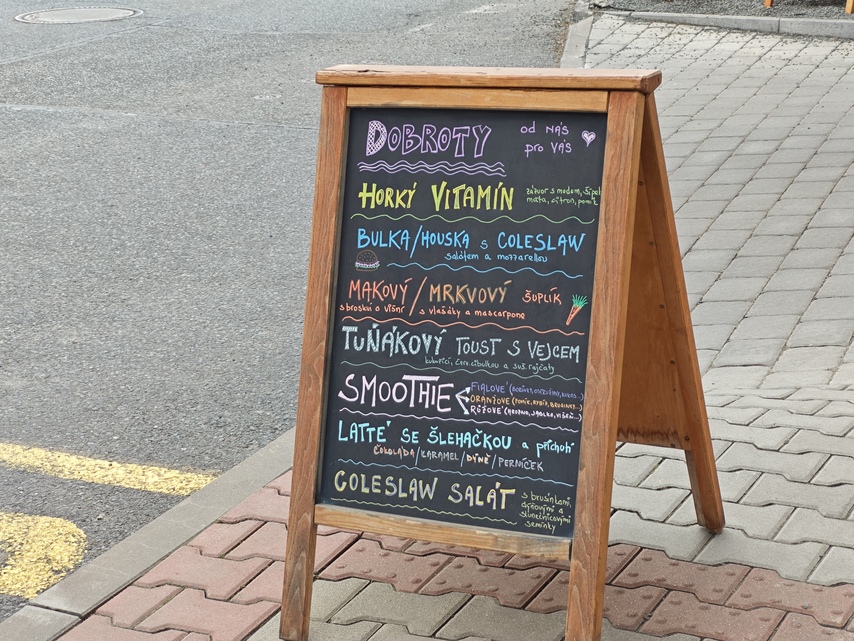 DOBROTY od NÁS
pro VÁS
HORKÝ VITAMÍN zázvor s medem, šípek
máta, citron, pomer
BULKA/HOUSKA s COLESLAW
salátem a mozzarellou
MAKOVÝ/MRKVOVÝ ŠUPLÍK
s broskví o višní s vlašáky a mascarpone
TUŇÁKOVÝ TOUST S VEJCEM
kukuřicí, červ. cibulkou a suš. rajčaty
SMOOTHIE FIALOVÉ
ORANŽOVÉ
RŮŽOVÉ
LATTÉ SE ŠLEHAČKOU a příchutí
ČOKOLÁDA/KARAMEL/DÝNĚ/PERNÍČEK
COLESLAW SALÁT s brusinkami,
dýňovými a
slunečnicovými
semínky